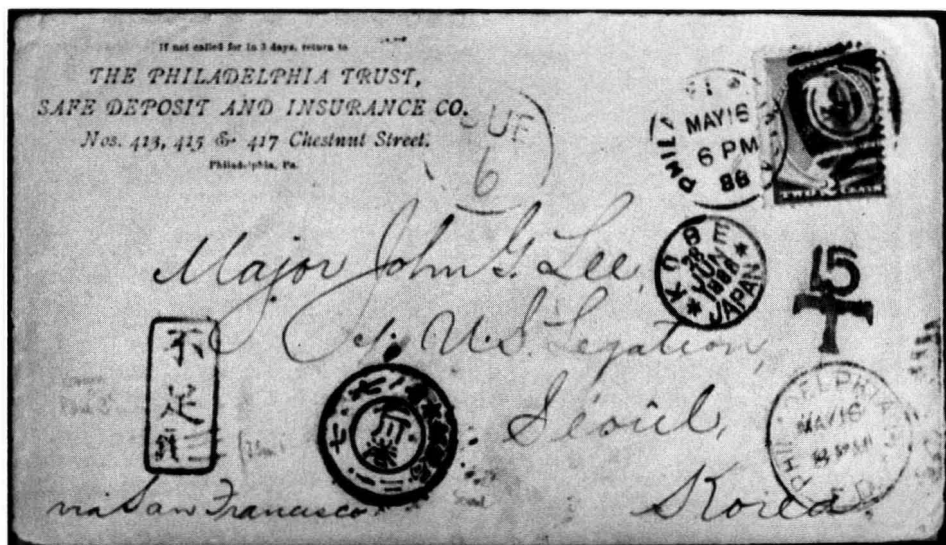 If not called for in 3 days, return to
THE PHILADELPHIA TRUST,
SAFE DEPOSIT AND INSURANCE CO.
Nos. 413, 415 & 417 Chestnut Street.
Philadelphia, Pa.
DUE
6
MAY 16
6 PM
88
KOBE
28
JUN
1888
JAPAN
15
T
Major John G. Lee,
U.S. Legation,
Seoul,
Korea
via San Francisco
不足
PHILADELPHIA
MAY 16